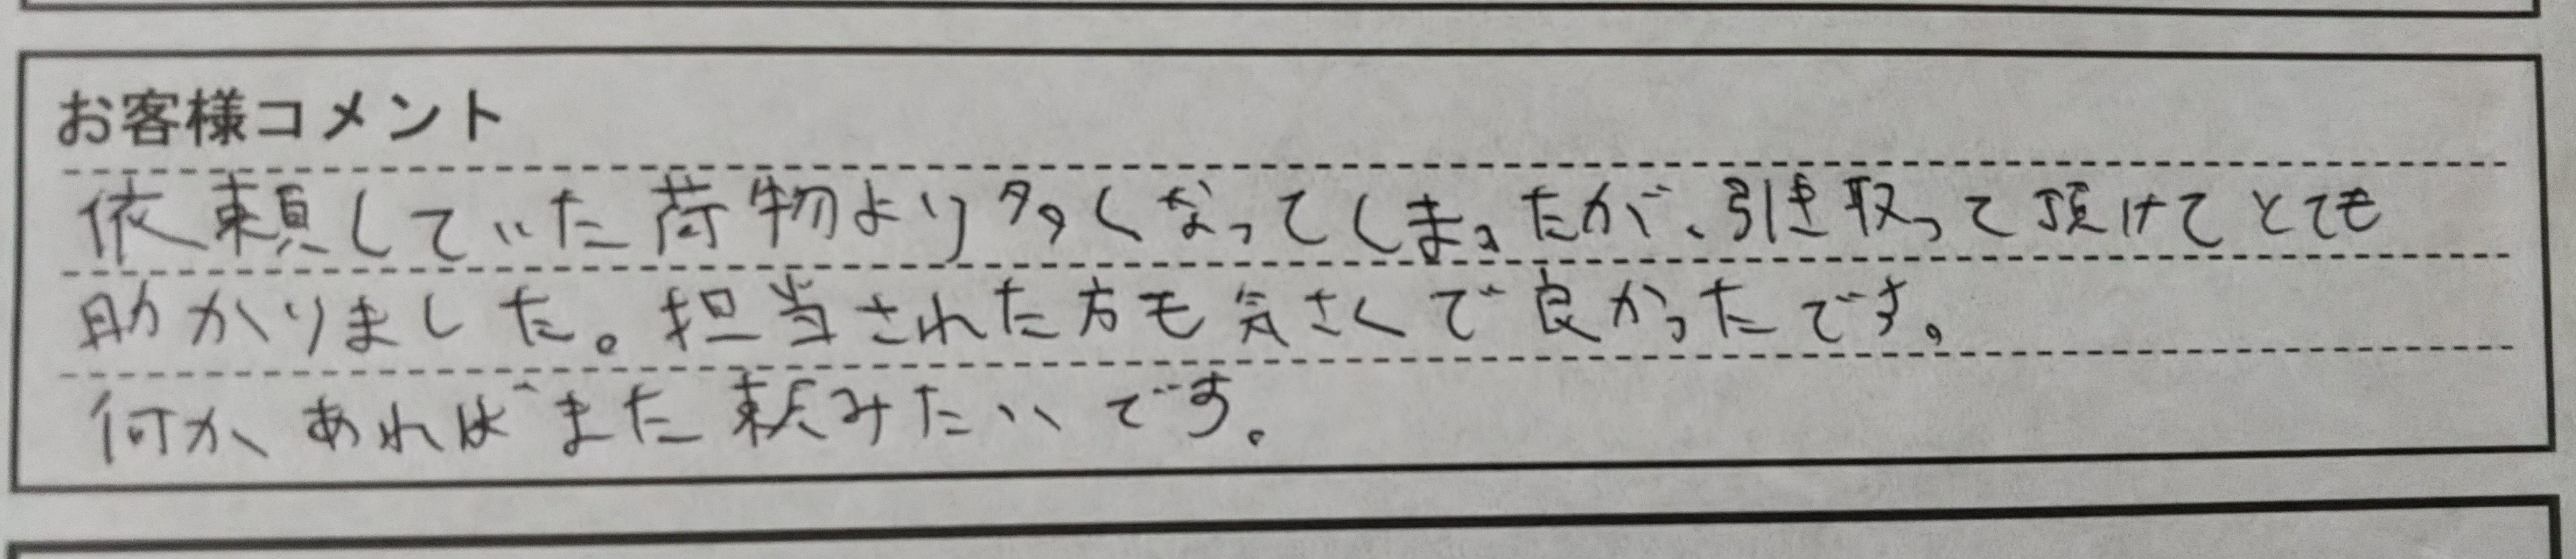 お客様コメント
依頼していた荷物より多くなってしまったが、引き取って頂けてとても
助かりました。担当された方も気さくで良かったです。
何かあればまた頼みたいです。